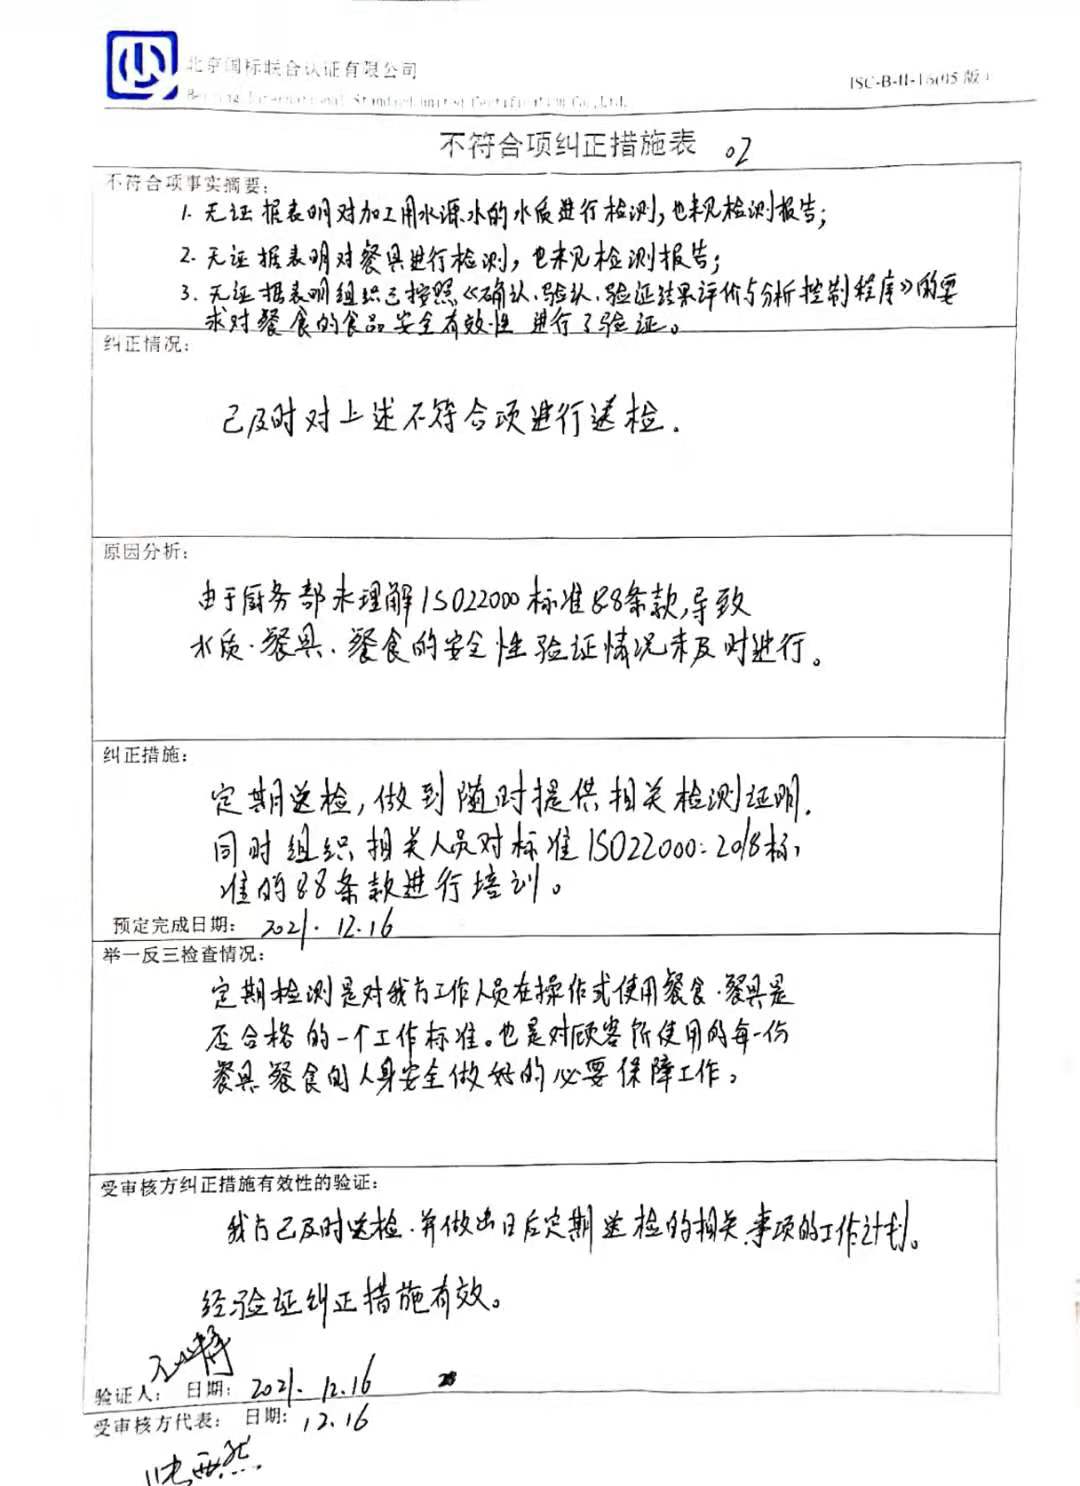 北京国标联合认证有限公司
Beijing International Standard united Certification Co.,Ltd.
ISC-B-II-16(05版)
不符合项纠正措施表 02
不符合项事实摘要:
1. 无证据表明对加工用水源水的水质进行检测,也未见检测报告;
2. 无证据表明对餐具进行检测,也未见检测报告;
3. 无证据表明组织已按照《确认、验认、验证结果评价与分析控制程序》的要
求对餐食的食品安全有效性 进行了验证。
纠正情况:
已及时对上述不符合项进行送检.
原因分析:
由于厨务部未理解ISO22000标准8.8条款,导致
水质、餐具、餐食的安全性验证情况未及时进行。
纠正措施:
定期送检,做到随时提供相关检测证明.
同时组织相关人员对标准ISO22000:2018标
准的8.8条款进行培训。
预定完成日期: 2021.12.16
举一反三检查情况:
定期检测是对我方工作人员在操作或使用餐食、餐具是
否合格的一个工作标准。也是对顾客所使用的每一份
餐具餐食的人身安全做好的必要保障工作。
受审核方纠正措施有效性的验证:
我方已及时送检.并做出日后定期送检的相关事项的工作计划。
经验证纠正措施有效。
验证人: 日期: 2021.12.16
受审核方代表: 日期: 12.16